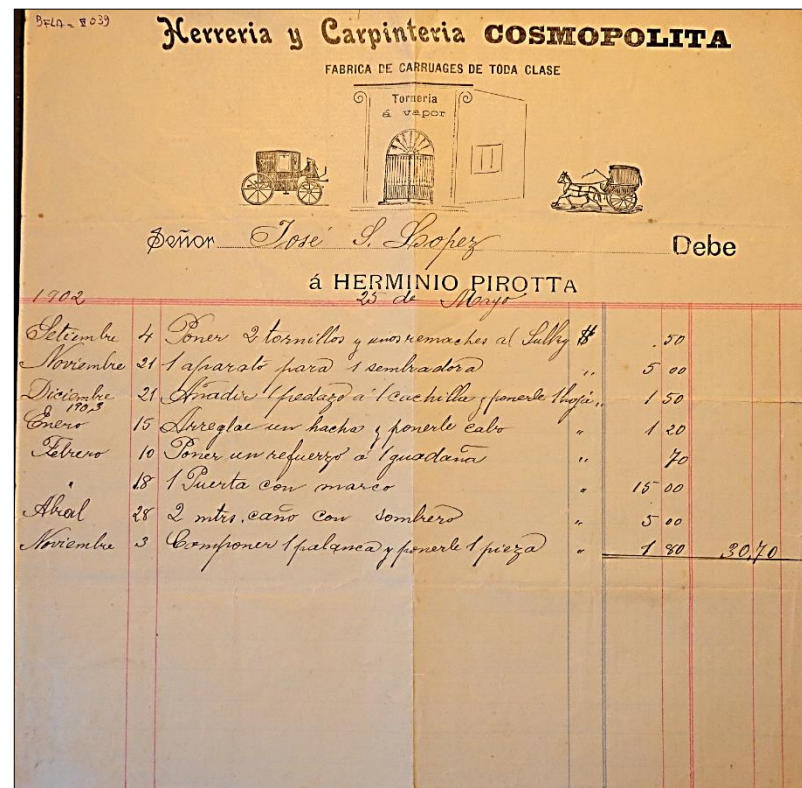 BFLA - E 039
Herreria y Carpinteria COSMOPOLITA
FABRICA DE CARRUAGES DE TODA CLASE
Torneria
á vapor
Señor José S. Lopez Debe
á HERMINIO PIROTTA
1902 25 de Mayo
Setiembre 4 Poner 2 tornillos y unos remaches al Sulky $ .50
Noviembre 21 1 aparato para 1 sembradora " 5 00
Diciembre 21 Añadir 1 pedazo á 1 cuchilla y ponerle 1 hoja " 1 50
1903
Enero 15 Arreglar un hacha y ponerle cabo " 1 20
Febrero 10 Poner un refuerzo á 1 guadaña " 70
" 18 1 Puerta con marco " 15 00
Abral 28 2 mtrs. caño con sombrero " 5 00
Noviembre 3 Componer 1 palanca y ponerle 1 pieza " 1 80 30,70